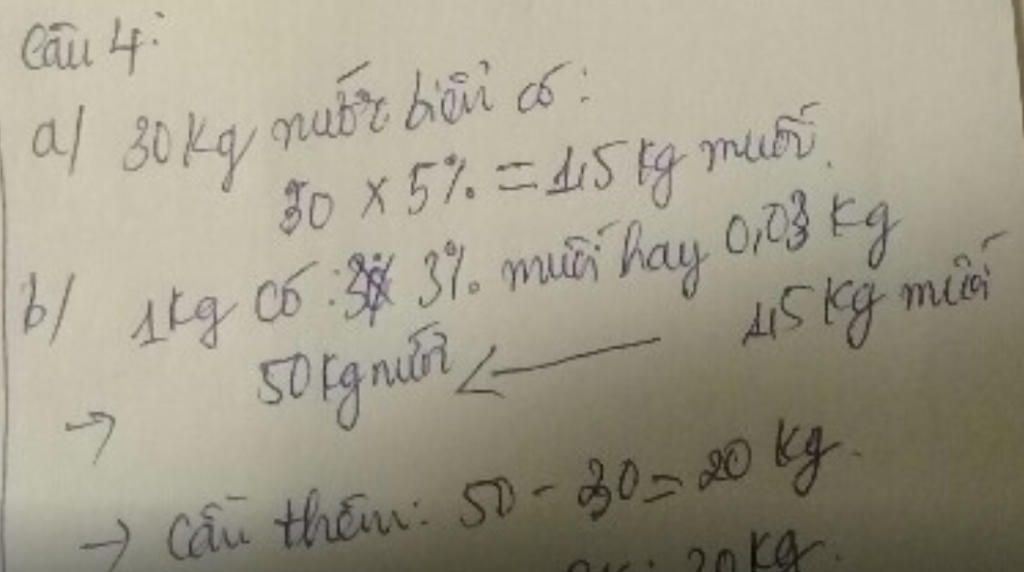 Câu 4:
a/ 30kg nước biển có:
30 x 5% = 1,5 kg muối.
b/ 1kg có: 3% muối hay 0,03 kg
50 kg nước ← 1,5 kg muối
→
→ Cần thêm: 50 - 30 = 20 kg.
20 kg.